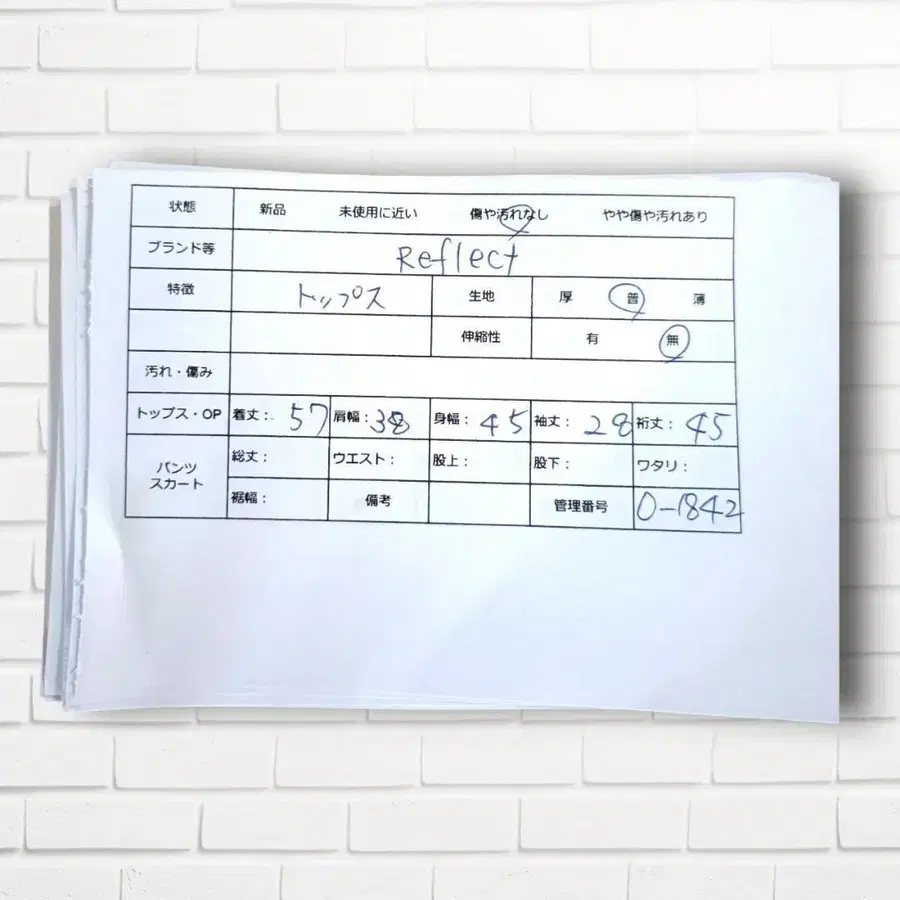 状態 新品 未使用に近い 傷や汚れなし やや傷や汚れあり
ブランド等 Reflect
特徴 トップス 生地 厚 普 薄
伸縮性 有 無
汚れ・傷み
トップス・OP 着丈: 57 肩幅: 38 身幅: 45 袖丈: 28 裄丈: 45
パンツ スカート 総丈: ウエスト: 股上: 股下: ワタリ:
裾幅: 備考 管理番号 O-1842